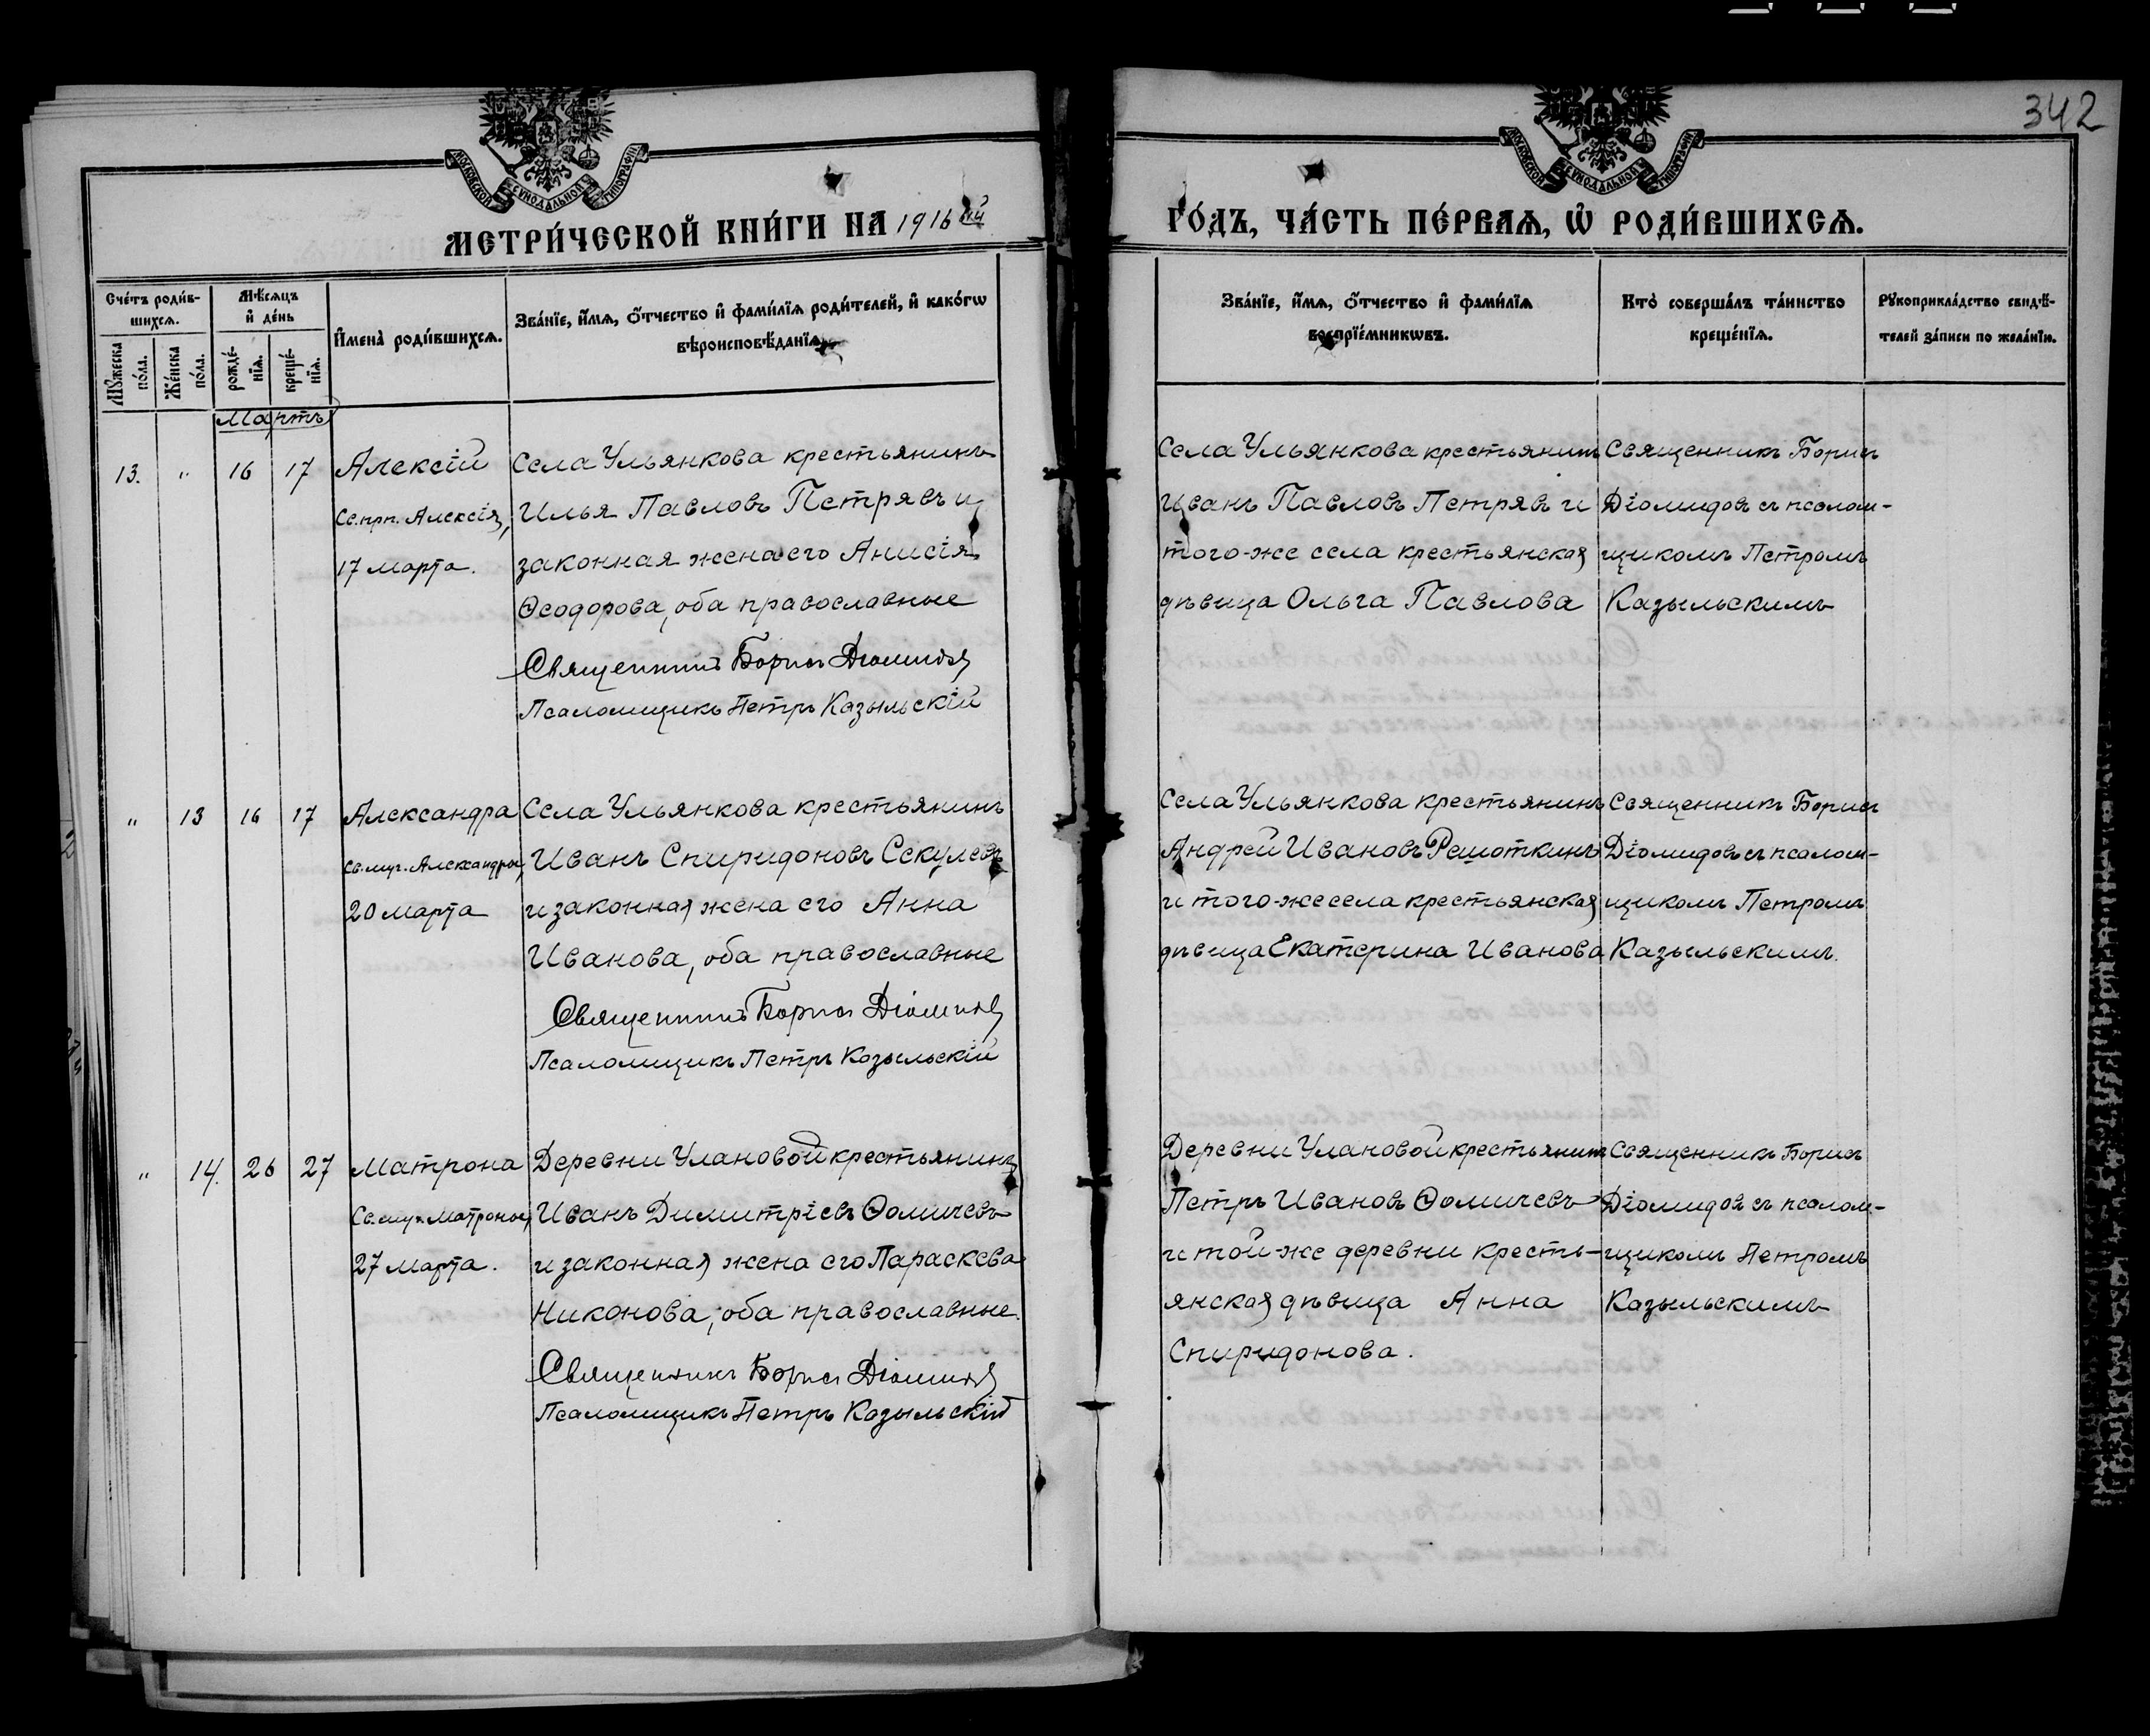 342
МОСКОВСКОЙ СѴНОДАЛЬНОЙ ТИПОГРАФІИ
МОСКОВСКОЙ СѴНОДАЛЬНОЙ ТИПОГРАФІИ
МЕТРИ́ЧЕСКОЙ КНИ́ГИ НА 1916 ый
ГО́ДЪ, ЧА́СТЬ ПЕ́РВАѦ, Ѡ҆ РОДИ́ВШИХСѦ.
Сче́тъ роди́в-
шихсѧ.
Мꙋ́жеска по́ла.
Же́нска по́ла.
Мѣ́сѧцъ
и҆ де́нь
рожде́-
нїѧ.
креще́-
нїѧ.
И҆мена̀ роди́вшихсѧ.
Зва́нїе, и҆́мѧ, ѻ҆́тчество и҆ фами́лїѧ роди́телей, и҆ како́гѡ
вѣроисповѣ́данїѧ.
Зва́нїе, и҆́мѧ, ѻ҆́тчество и҆ фами́лїѧ
воспрїе́мникѡвъ.
Кто̀ соверша́лъ та́инство
креще́нїѧ.
Рꙋкоприкла́дство свидѣ́-
телей за́писи по жела́нїю.
Мартъ
13. " 16 17
Алексій
Св. прп. Алексія,
17 марта.
Села Ульянкова крестьянинъ
Илья Павловъ Петряевъ и
законная жена его Анисія
Ѳеодорова, оба православные
Священникъ Борисъ Діомидовъ
Псаломщикъ Петръ Казыльскій
Села Ульянкова крестьянинъ
Иванъ Павловъ Петряевъ и
того-же села крестьянская
дѣвица Ольга Павлова
Священникъ Борисъ
Діомидовъ съ псалом-
щикомъ Петромъ
Казыльскимъ
" 13 16 17
Александра
Св. муч. Александры,
20 марта
Села Ульянкова крестьянинъ
Иванъ Спиридоновъ Секулевъ
и законная жена его Анна
Иванова, оба православные
Священникъ Борисъ Діомидовъ
Псаломщикъ Петръ Казыльскій
Села Ульянкова крестьянинъ
Андрей Ивановъ Решоткинъ
и того-же села крестьянская
дѣвица Екатерина Иванова
Священникъ Борисъ
Діомидовъ съ псалом-
щикомъ Петромъ
Казыльскимъ.
" 14. 26 27
Матрона
Св. муч. Матроны,
27 марта.
Деревни Улановой крестьянинъ
Иванъ Димитріевъ Ѳомичевъ
и законная жена его Параскева
Никонова, оба православные.
Священникъ Борисъ Діомидовъ
Псаломщикъ Петръ Казыльскій
Деревни Улановой крестьянинъ
Петръ Ивановъ Ѳомичевъ
и той-же деревни кресть-
янская дѣвица Анна
Спиридонова.
Священникъ Борисъ
Діомидовъ съ псалом-
щикомъ Петромъ
Казыльскимъ